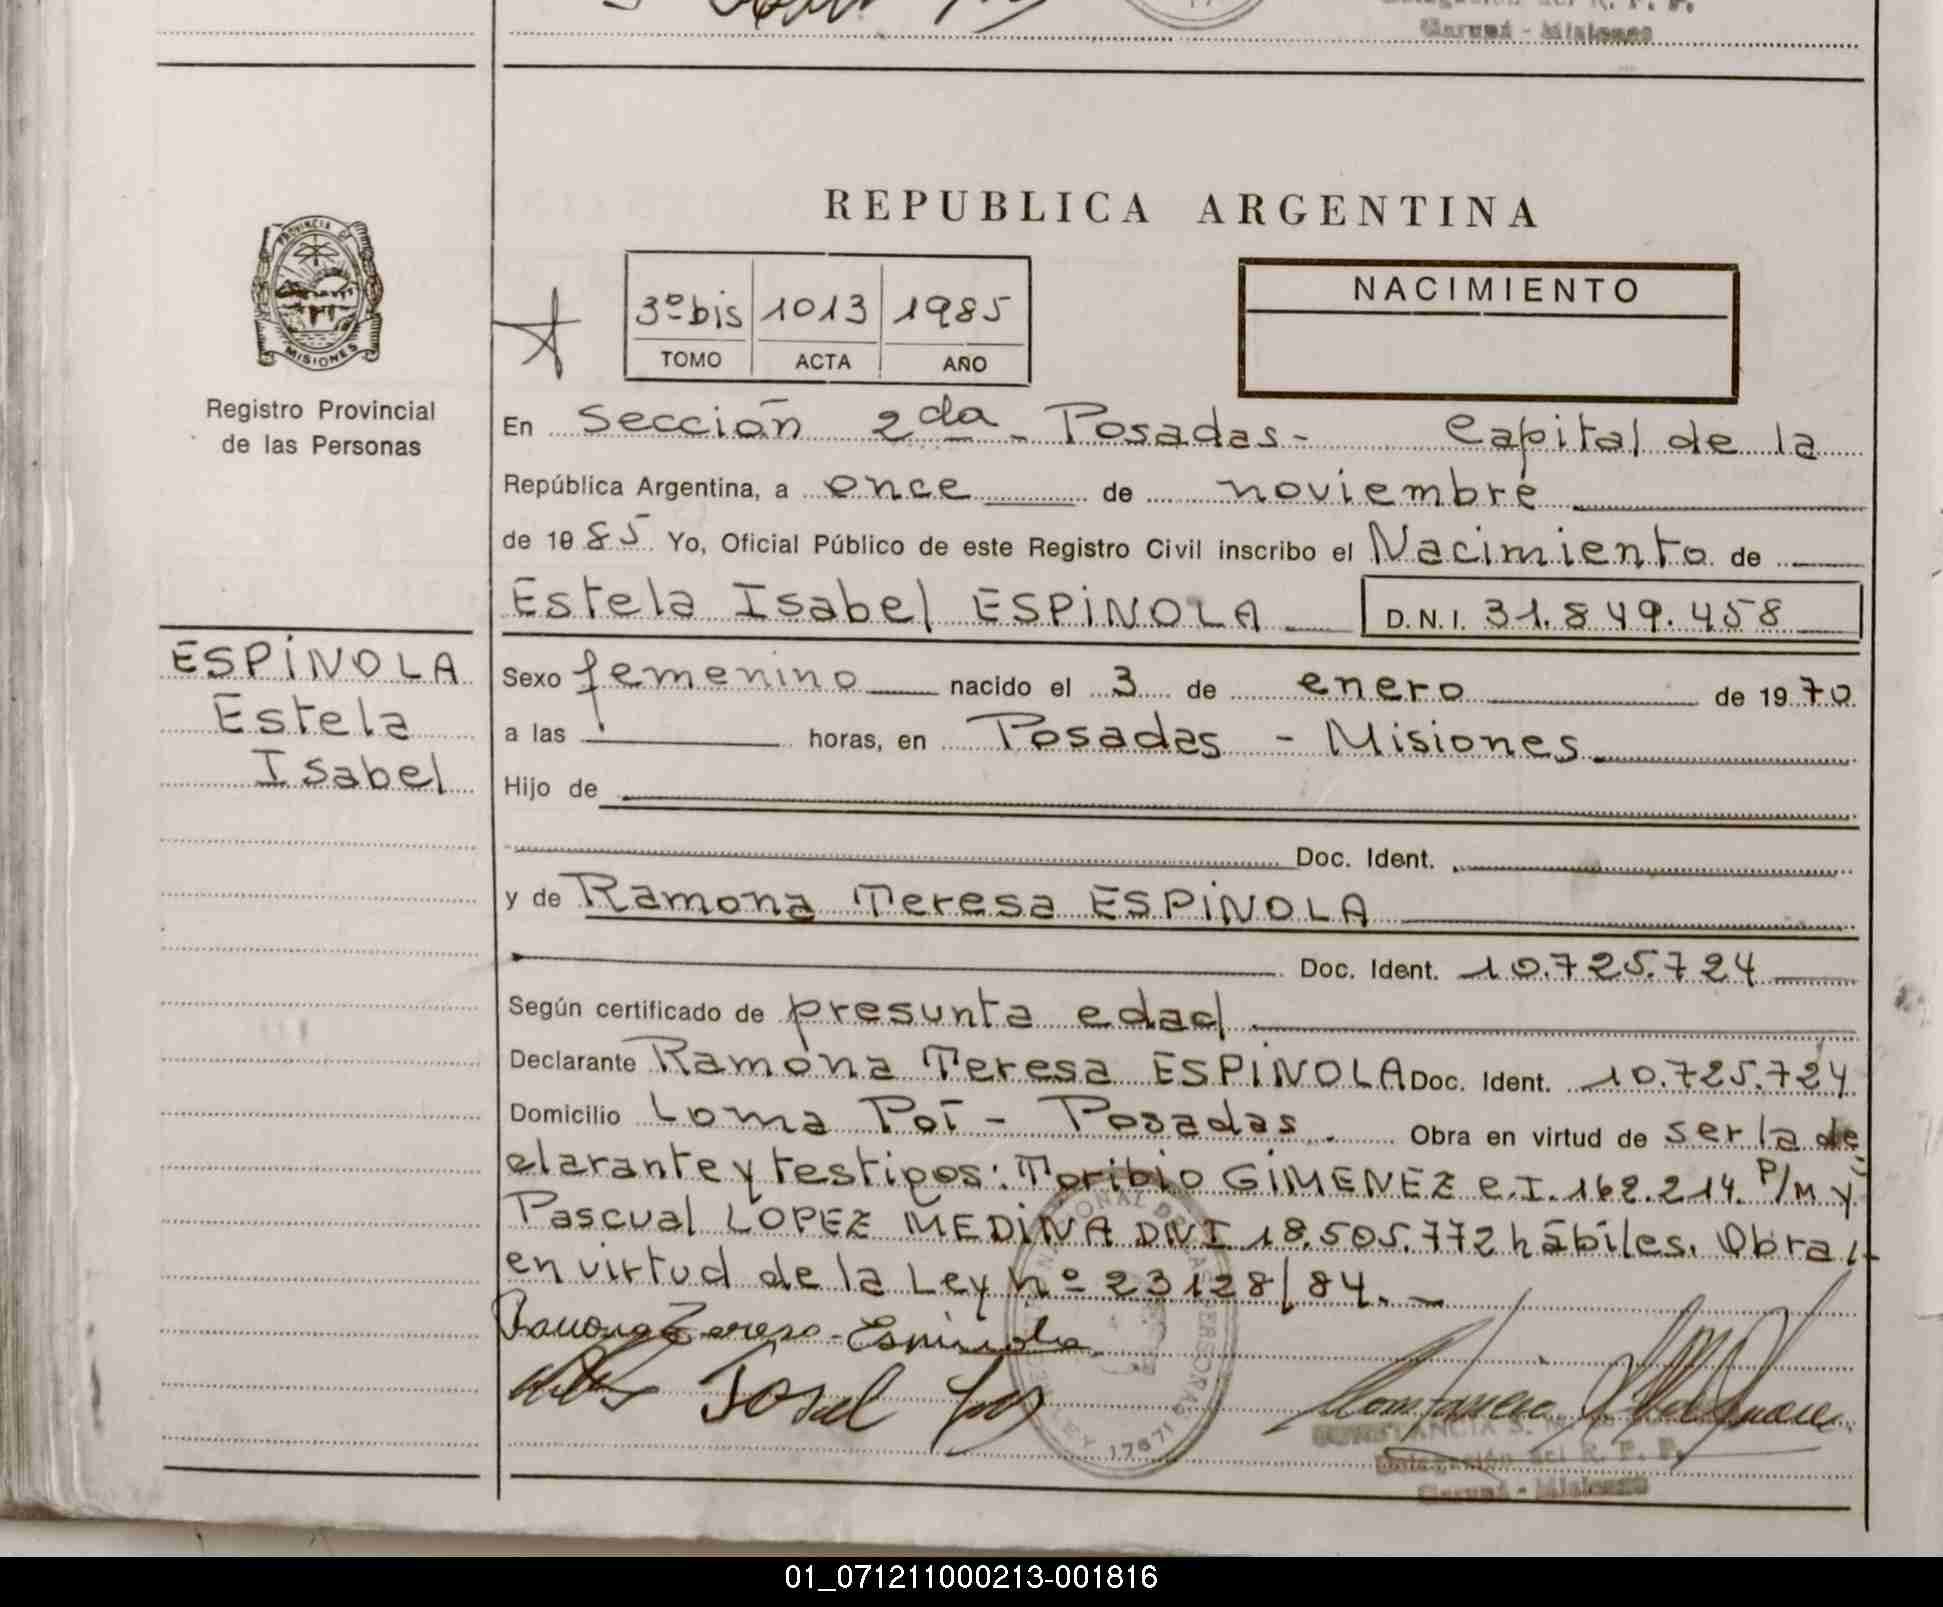 Garupá - Misiones
REPUBLICA ARGENTINA
PROVINCIA DE
MISIONES
Registro Provincial
de las Personas
3º bis 1013 1985
TOMO ACTA AÑO
NACIMIENTO
En Sección 2da - Posadas - Capital de la
República Argentina, a once de noviembre
de 1985 Yo, Oficial Público de este Registro Civil inscribo el Nacimiento de
Estela Isabel ESPINOLA D.N.I. 31.849.458
ESPINOLA
Estela
Isabel
Sexo femenino nacido el 3 de enero de 1970
a las horas, en Posadas - Misiones
Hijo de
Doc. Ident.
y de Ramona Teresa ESPINOLA
Doc. Ident. 10.725.724
Según certificado de presunta edad
Declarante Ramona Teresa ESPINOLA Doc. Ident. 10.725.724
Domicilio Loma Poí - Posadas. Obra en virtud de ser la de
clarante y testigos: Toribio GIMENEZ C.I. 162.214. P/M y
Pascual LOPEZ MEDINA DNI 18.505.772 hábiles. Obra
en virtud de la Ley nº 23128/84. -
Ramona Teresa - Espinola
LEY 17671
Delegación del R. P. P.
Garupá - Misiones
01_071211000213-001816